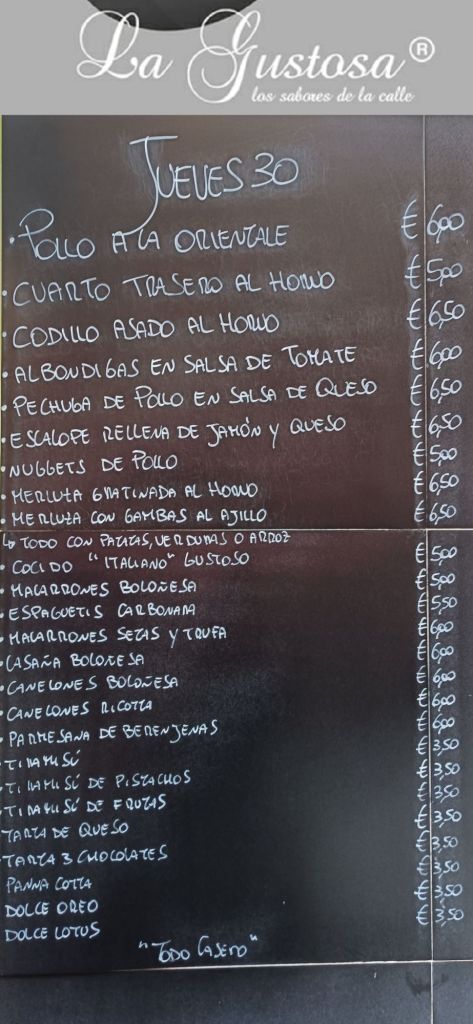 La Gustosa®
los sabores de la calle
JUEVES 30
• POLLO A LA ORIENTALE € 6,00
• CUARTO TRASERO AL HORNO € 5,00
• CODILLO ASADO AL HORNO € 6,50
• ALBONDIGAS EN SALSA DE TOMATE € 6,00
• PECHUGA DE POLLO EN SALSA DE QUESO € 6,50
• ESCALOPE RELLENA DE JAMÓN Y QUESO € 6,50
• NUGGETS DE POLLO € 5,00
• MERLUZA GRATINADA AL HORNO € 6,50
• MERLUZA CON GAMBAS AL AJILLO € 6,50
↳ TODO CON PATATAS, VERDURAS O ARROZ
• COCIDO "ITALIANO" GUSTOSO € 5,00
• MACARRONES BOLOÑESA € 5,00
• ESPAGUETIS CARBONARA € 5,50
• MACARRONES SETAS Y TRUFA € 6,00
• LASAÑA BOLOÑESA € 6,00
• CANELONES BOLOÑESA € 6,00
• CANELONES RICOTTA € 6,00
• PARMESANA DE BERENJENAS € 6,00
• TIRAMISÚ € 3,50
• TIRAMISÚ DE PISTACHOS € 3,50
• TIRAMISÚ DE FRUTAS € 3,50
• TARTA DE QUESO € 3,50
• TARTA 3 CHOCOLATES € 3,50
PANNA COTTA € 3,50
DOLCE OREO € 3,50
DOLCE LOTUS € 3,50
"TODO CASERO"